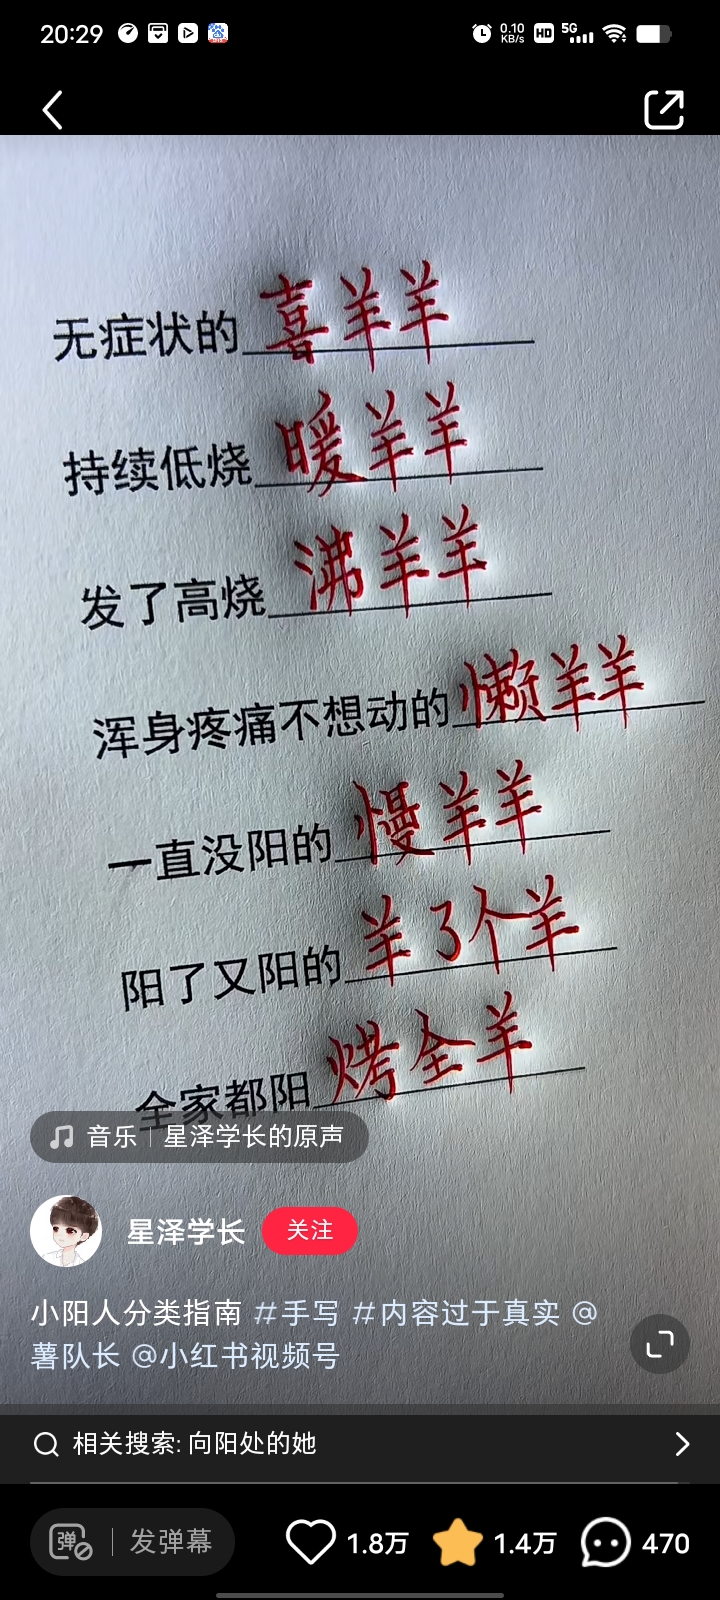 20:29
0.10 KB/s HD 5G
无症状的 喜羊羊
持续低烧 暖羊羊
发了高烧 沸羊羊
浑身疼痛不想动的 懒羊羊
一直没阳的 慢羊羊
阳了又阳的 羊了个羊
全家都阳 烤全羊
音乐 | 星泽学长的原声
星泽学长 关注
小阳人分类指南 #手写 #内容过于真实 @
薯队长 @小红书视频号
相关搜索: 向阳处的她
弹 发弹幕 1.8万 1.4万 470